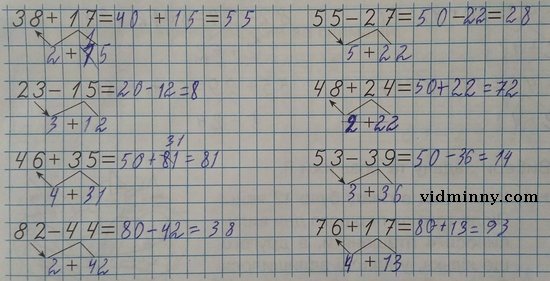 38+17=40 +15=55
2+15
23-15=20-12=8
3+12
46+35=50+31=81
4+31
82-44=80-42=38
2+42
55-27=50-22=28
5+22
48+24=50+22=72
2+22
53-39=50-36=14
3+36
vidminny.com
76+17=80+13=93
4+13